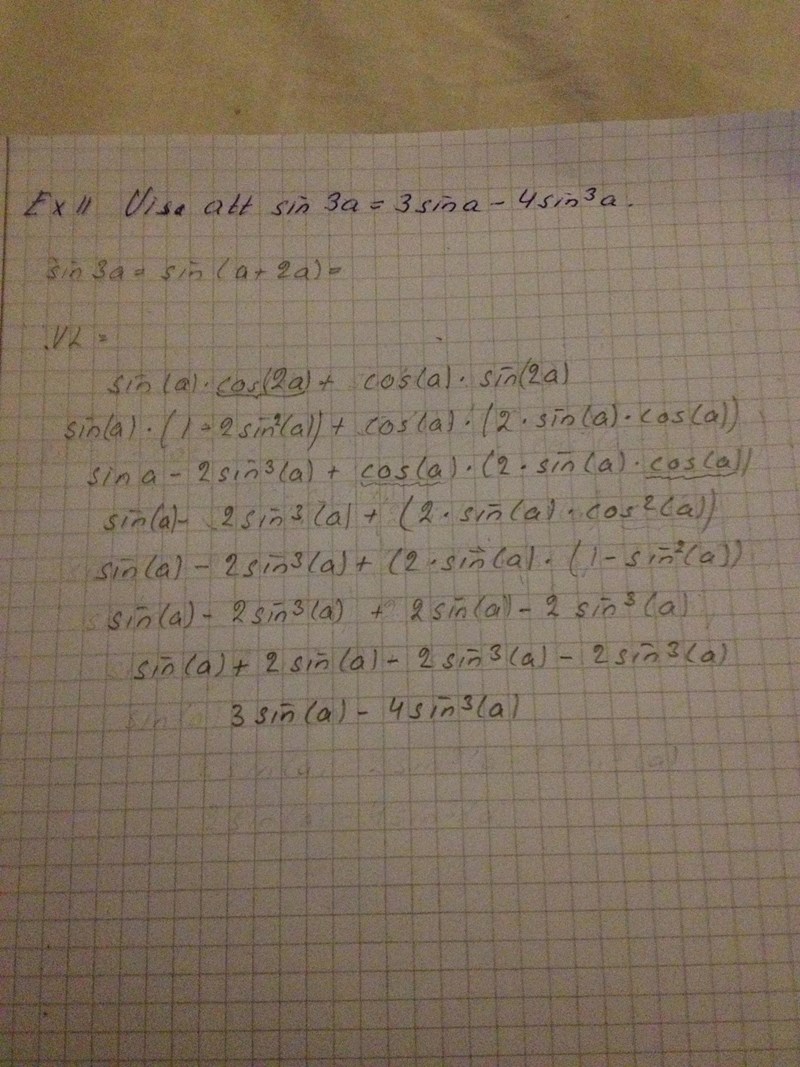 Ex 11 Visa att sin 3a = 3sina - 4sin³a.
sin 3a = sin(a+2a) =
VL =
sin(a)·cos(2a) + cos(a)·sin(2a)
sin(a)·(1-2sin²(a)) + cos(a)·(2·sin(a)·cos(a))
sin a - 2sin³(a) + cos(a)·(2·sin(a)·cos(a))
sin(a) - 2sin³(a) + (2·sin(a)·cos²(a))
sin(a) - 2sin³(a) + (2·sin(a)·(1-sin²(a))
sin(a) - 2sin³(a) + 2sin(a) - 2 sin³(a)
sin(a) + 2sin(a) - 2sin³(a) - 2sin³(a)
3sin(a) - 4sin³(a)